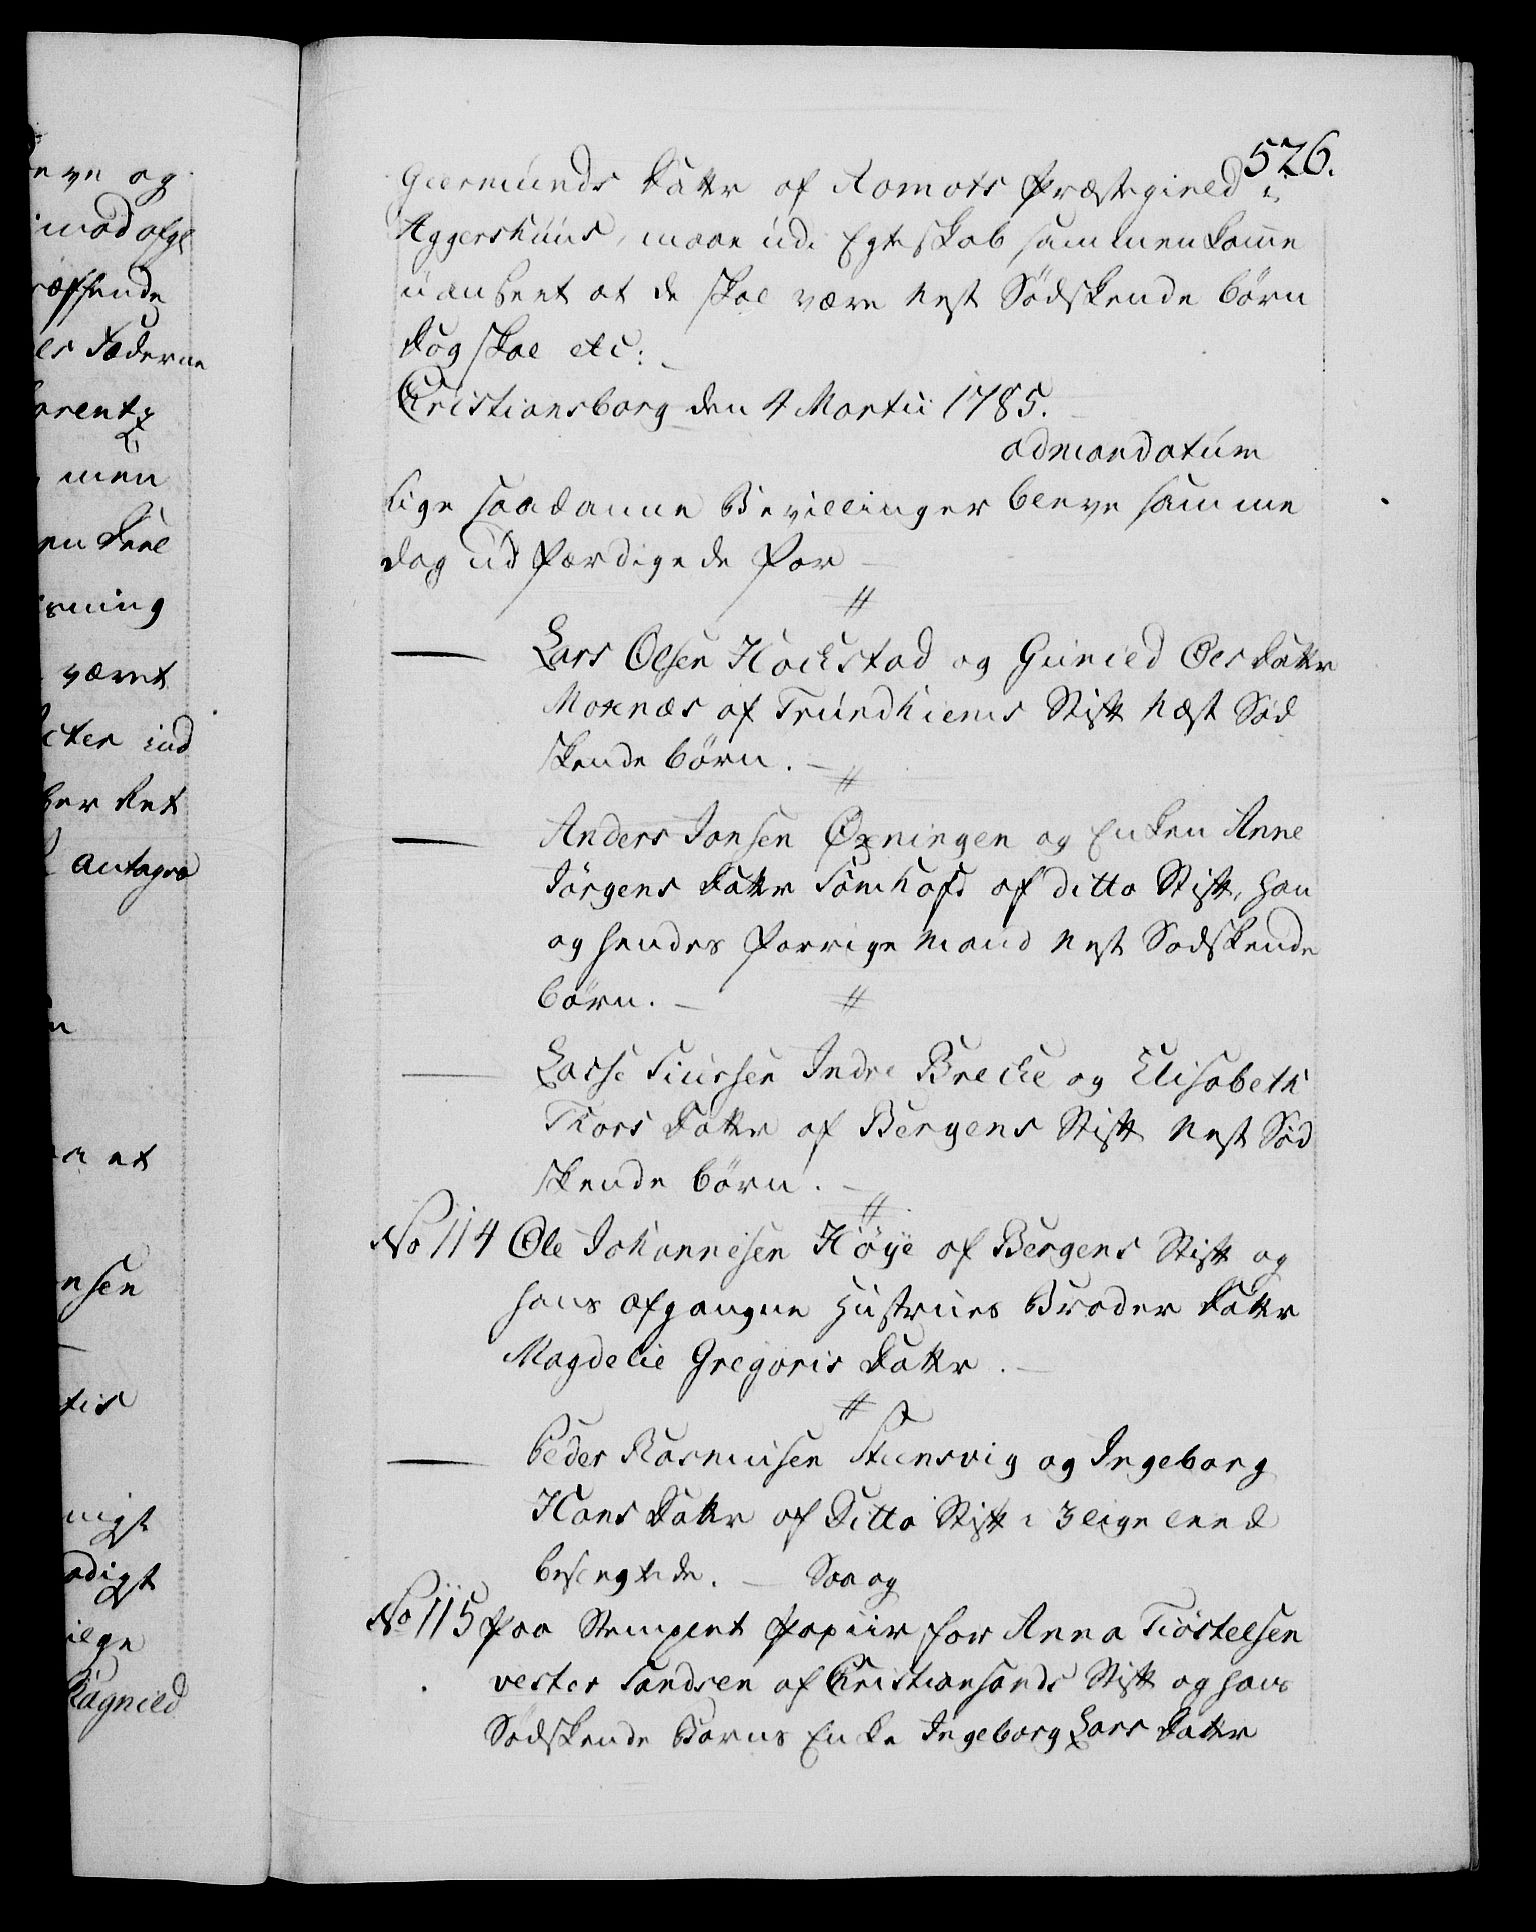 526.
Giermunds Datter af Aamots Præstegield i
Aggershuus, maae udi Egteskab sammenkomme
uanseet at de skal være Nest Södskende börn
dog skal etc:
Christiansborg den 4 Martii 1785.
ad mandatum
Lige saadanne Bevillinger bleve samme
dag udfærdigede for
Lars Olsen Hockstad og Gunild Ols datter
Moxnæs af Trundhiems Stift Næst Söd
skende börn.
Anders Jonsen Øxningen og Enken Anne
Jörgens datter Somhofd af ditto Stift, han
og hendes forrige Mand Nest Sodskende
börn.
Lasse Siursen Indre Brecke og Elisabeth
Thors datter af Bergens Stift Nest Söd
skende börn.
No 114 Ole Johannesen Höÿe af Bergens Stift og
hans afgangne Hustrues Broder datter
Magdelie Gregoris datter.
Peder Rasmusen Steensvig og Ingeborg
Hans datter af Ditto Stift i 3 lige leed
beslegtede. Saa og
No 115 paa Stemplet Papiir for Anna Tiöstelsen
vester Sandsen af Christiansands Stift og hans
Södskende Barns Enke Ingeborg Lars datter
eve og
imod afgl
ræffende
es Fæderne
arent
men
en deel
isning
været
cter ind
her Ret
antagra
n
a et
nsen
tis
nigt
ædigt
ilge
Ragnild